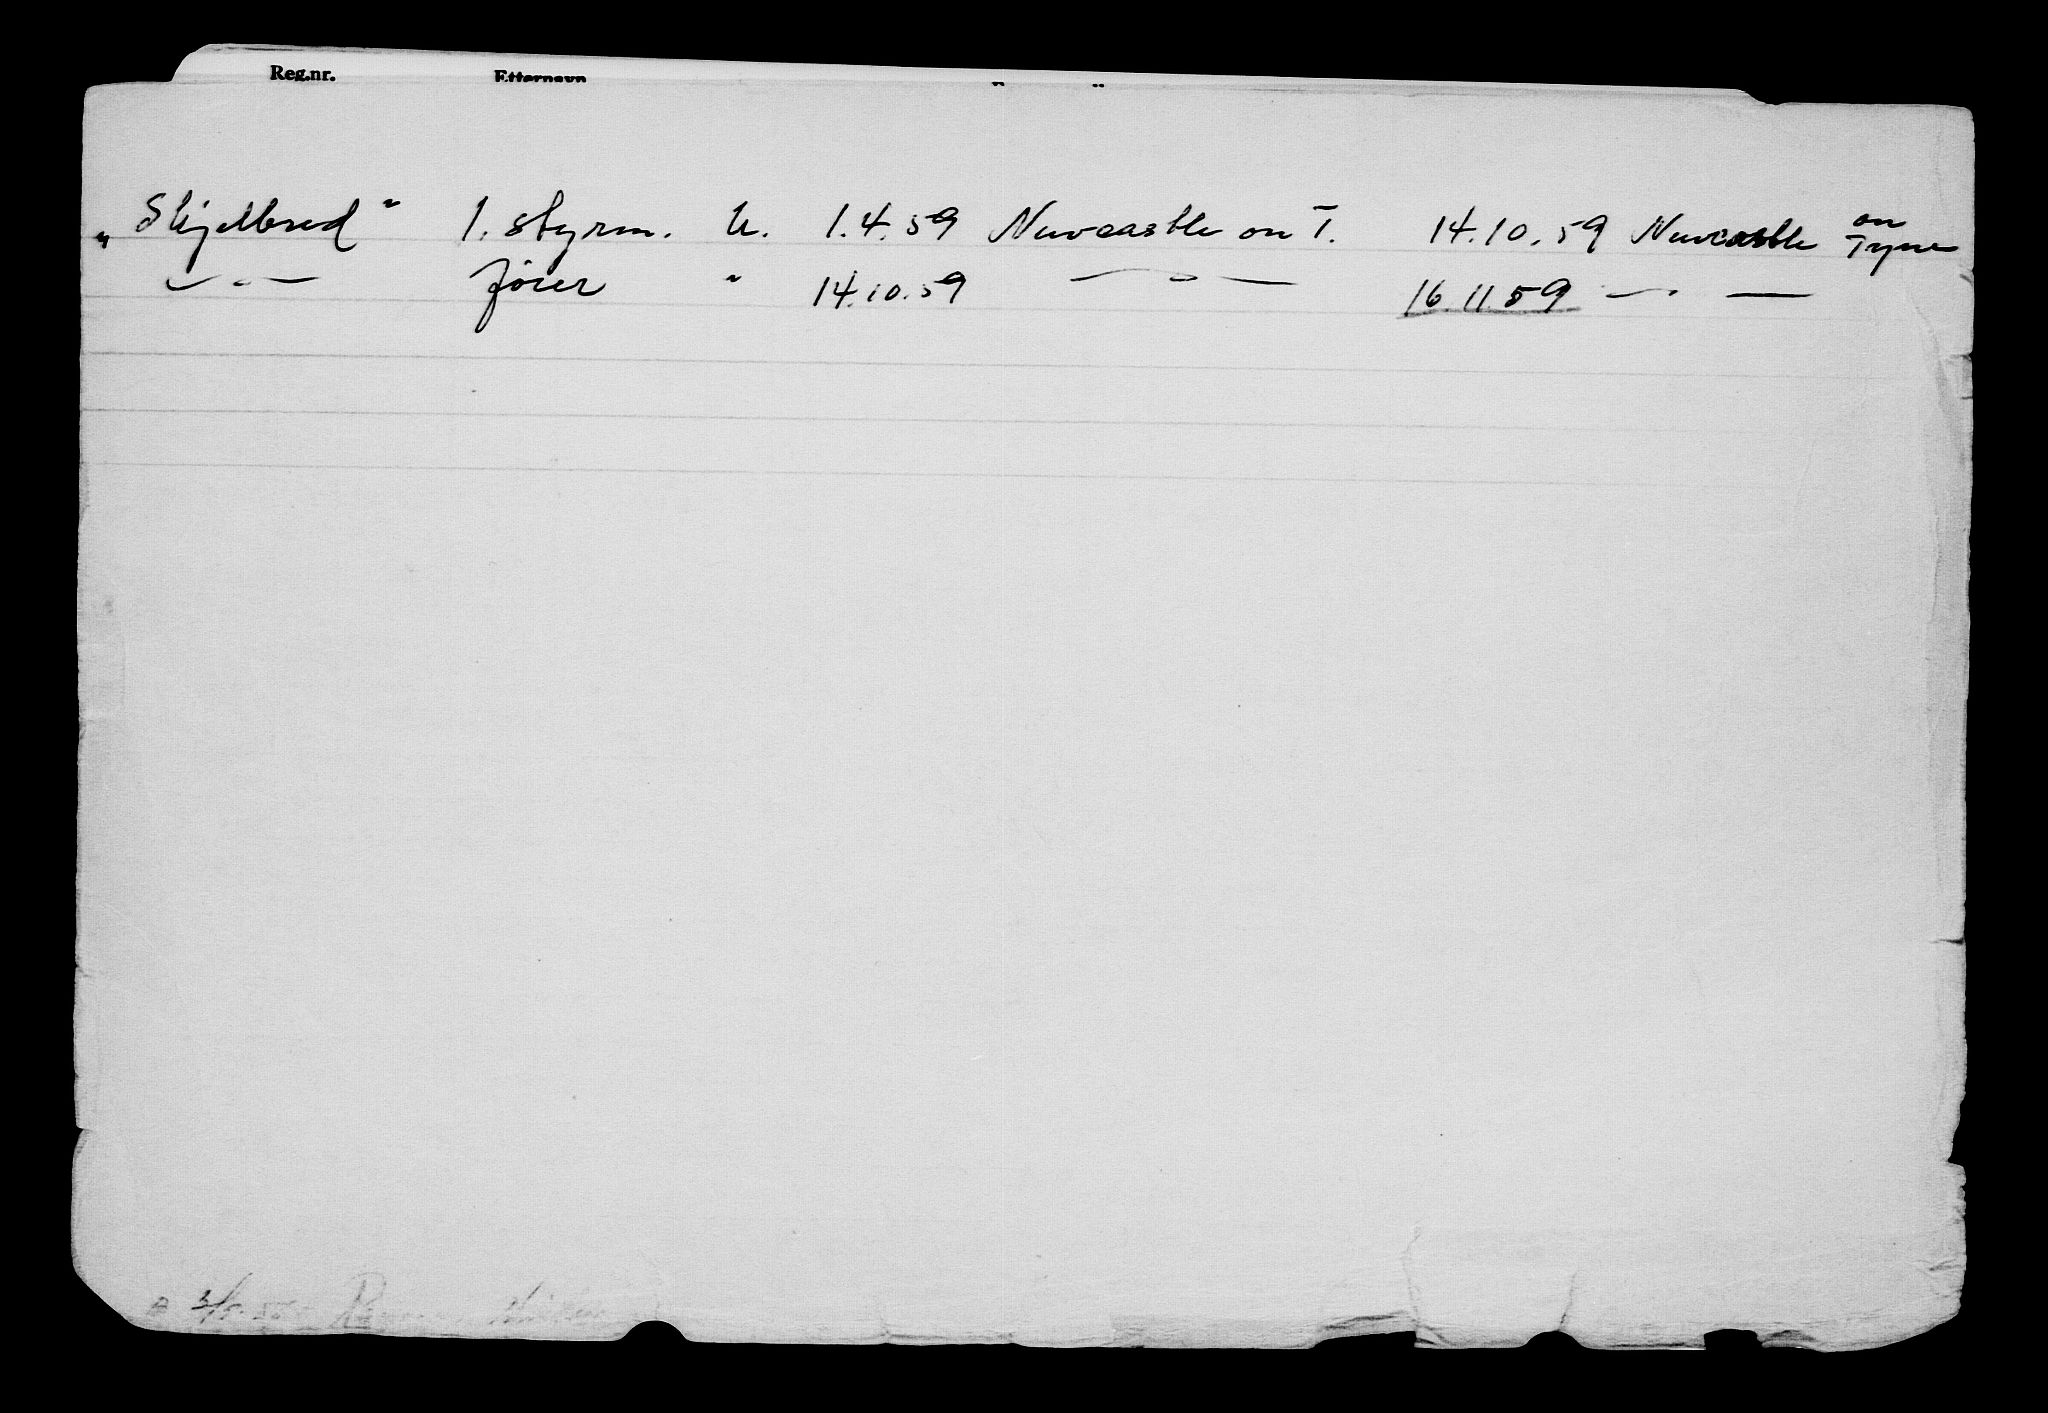 Reg.nr. Etternavn
„Skjelbred" 1. styrm. U. 1.4.59 Newcastle on T. 14.10.59 Newcastle on Tyne
— " — fører " 14.10.59 — " — 16.11.59 — " —